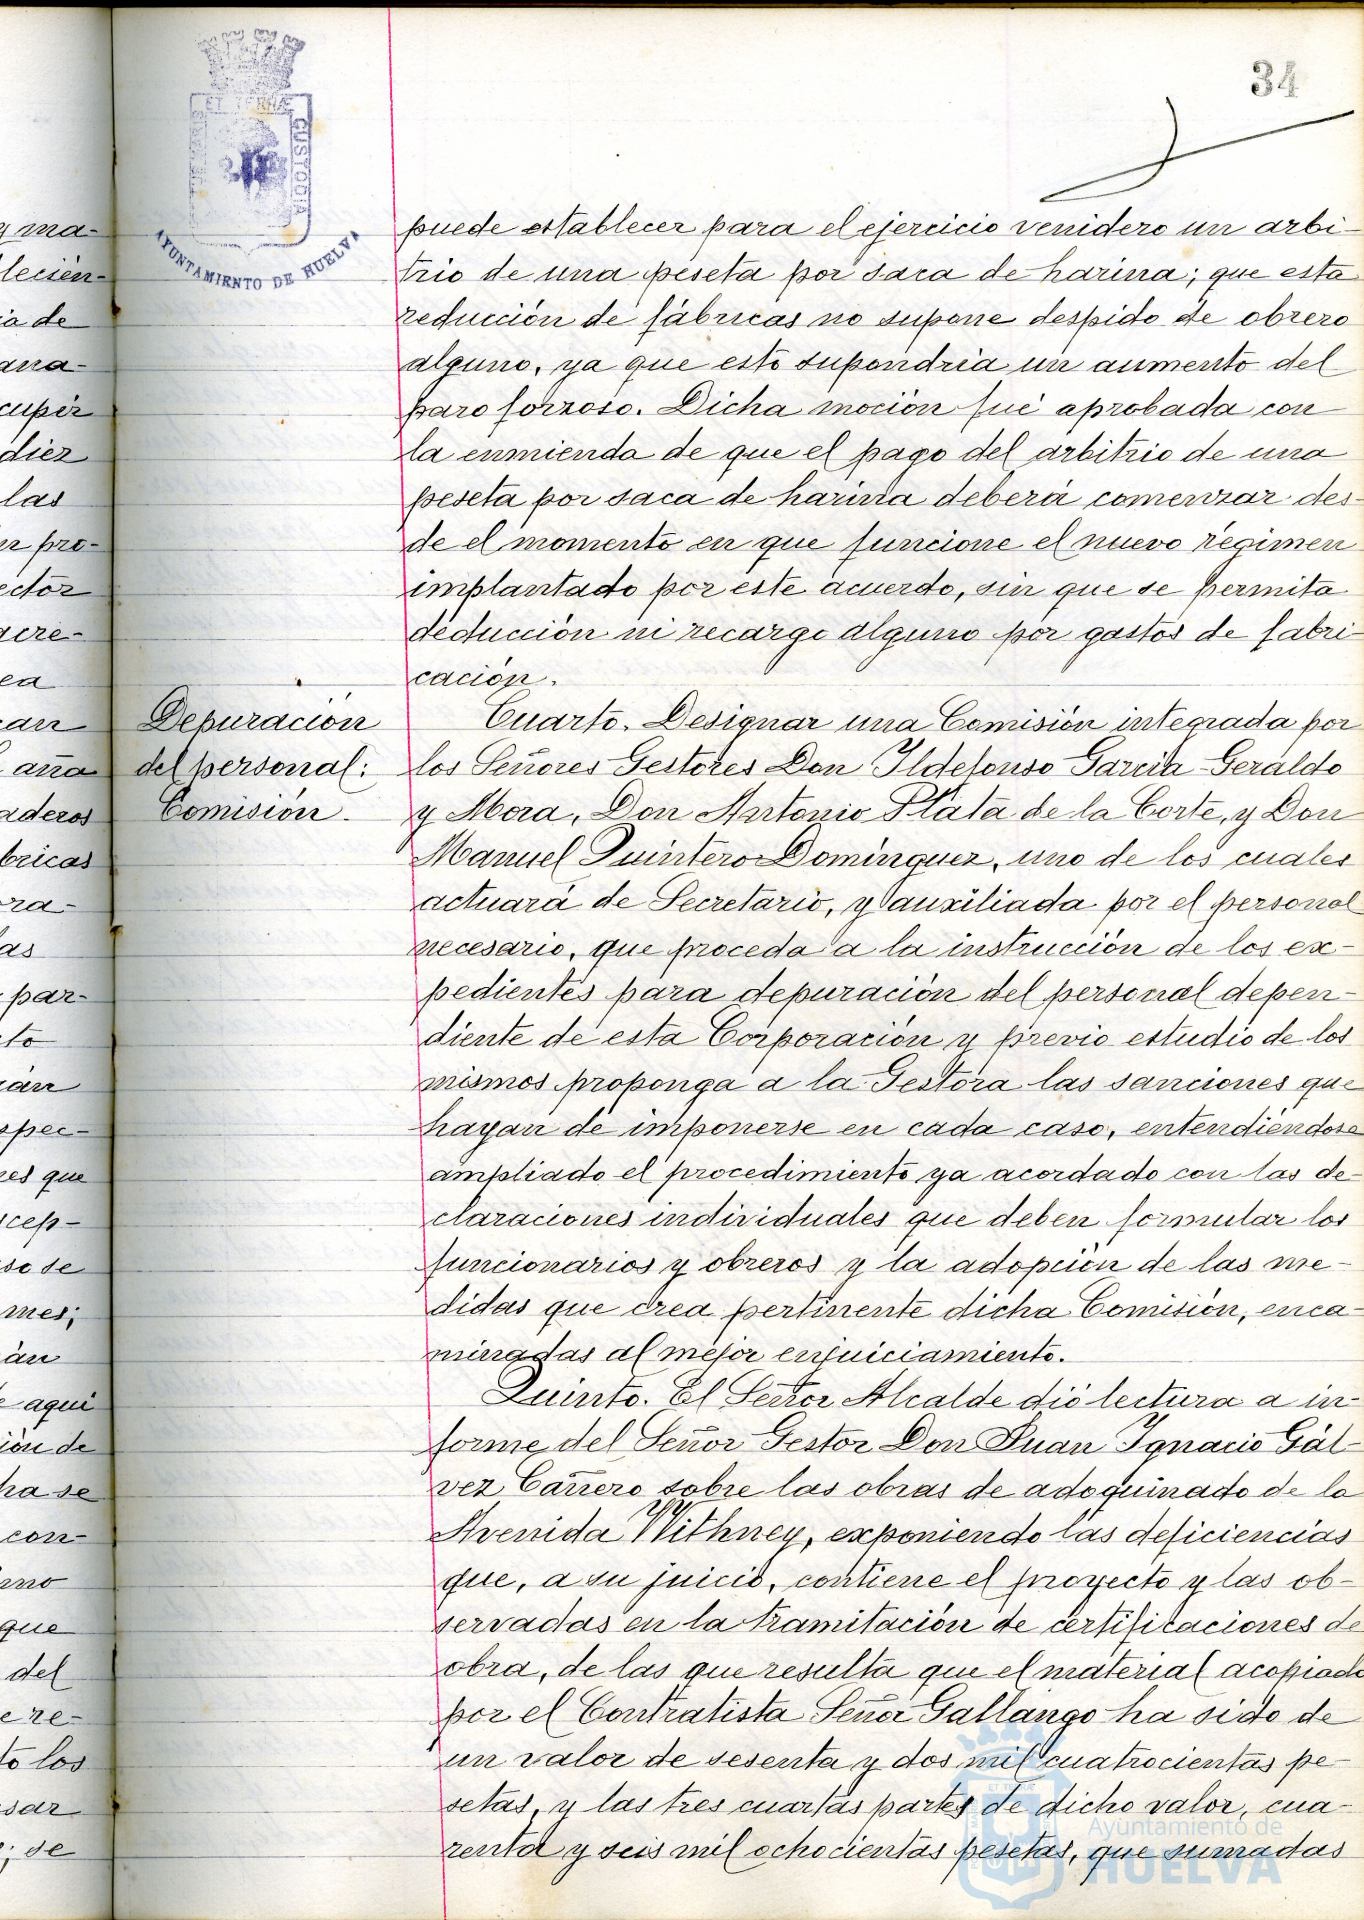 34
PORTUS MARIS
ET TERRÆ
CUSTODIA
AYUNTAMIENTO DE HUELVA
puede establecer para el ejercicio venidero un arbi-
trio de una peseta por saca de harina; que esta
reducción de fábricas no supone despido de obrero
alguno, ya que esto supondría un aumento del
paro forzoso. Dicha moción fué aprobada con
la enmienda de que el pago del arbitrio de una
peseta por saca de harina deberá comenzar des-
de el momento en que funcione el nuevo régimen
implantado por este acuerdo, sin que se permita
deducción ni recargo alguno por gastos de fabri-
cación.
Depuración
del personal:
Comisión.
Cuarto. Designar una Comisión integrada por
los Señores Gestores Don Ildefonso García Geraldo
y Mora, Don Antonio Plata de la Corte, y Don
Manuel Quintero Domínguez, uno de los cuales
actuará de Secretario, y auxiliada por el personal
necesario, que proceda a la instrucción de los ex-
pedientes para depuración del personal depen-
diente de esta Corporación y previo estudio de los
mismos proponga a la Gestora las sanciones que
hayan de imponerse en cada caso, entendiéndose
ampliado el procedimiento ya acordado con las de-
claraciones individuales que deben formular los
funcionarios y obreros y la adopción de las me-
didas que crea pertinente dicha Comisión, enca-
minadas al mejor enjuiciamiento.
Quinto. El Señor Alcalde dió lectura a in-
forme del Señor Gestor Don Juan Ignacio Gál-
vez Cañero sobre las obras de adoquinado de la
Avenida Withney, exponiendo las deficiencias
que, a su juicio, contiene el proyecto y las ob-
servadas en la tramitación de certificaciones de
obra, de las que resulta que el material acopiado
por el Contratista Señor Gallango ha sido de
un valor de sesenta y dos mil cuatrocientas pe-
setas, y las tres cuartas partes de dicho valor, cua-
renta y seis mil ochocientas pesetas, que sumadas
Ayuntamiento de
HUELVA
y ma-
lecién-
ia de
ana-
cupér
diez
las
pro-
ector
acre-
ea
can
aña
aderos
bricas
ora-
as
par-
to
rán
spec-
es que
scep-
so se
mes;
án
aquí
ión de
ha se
con-
rno
que
del
e re-
to los
sar
; se